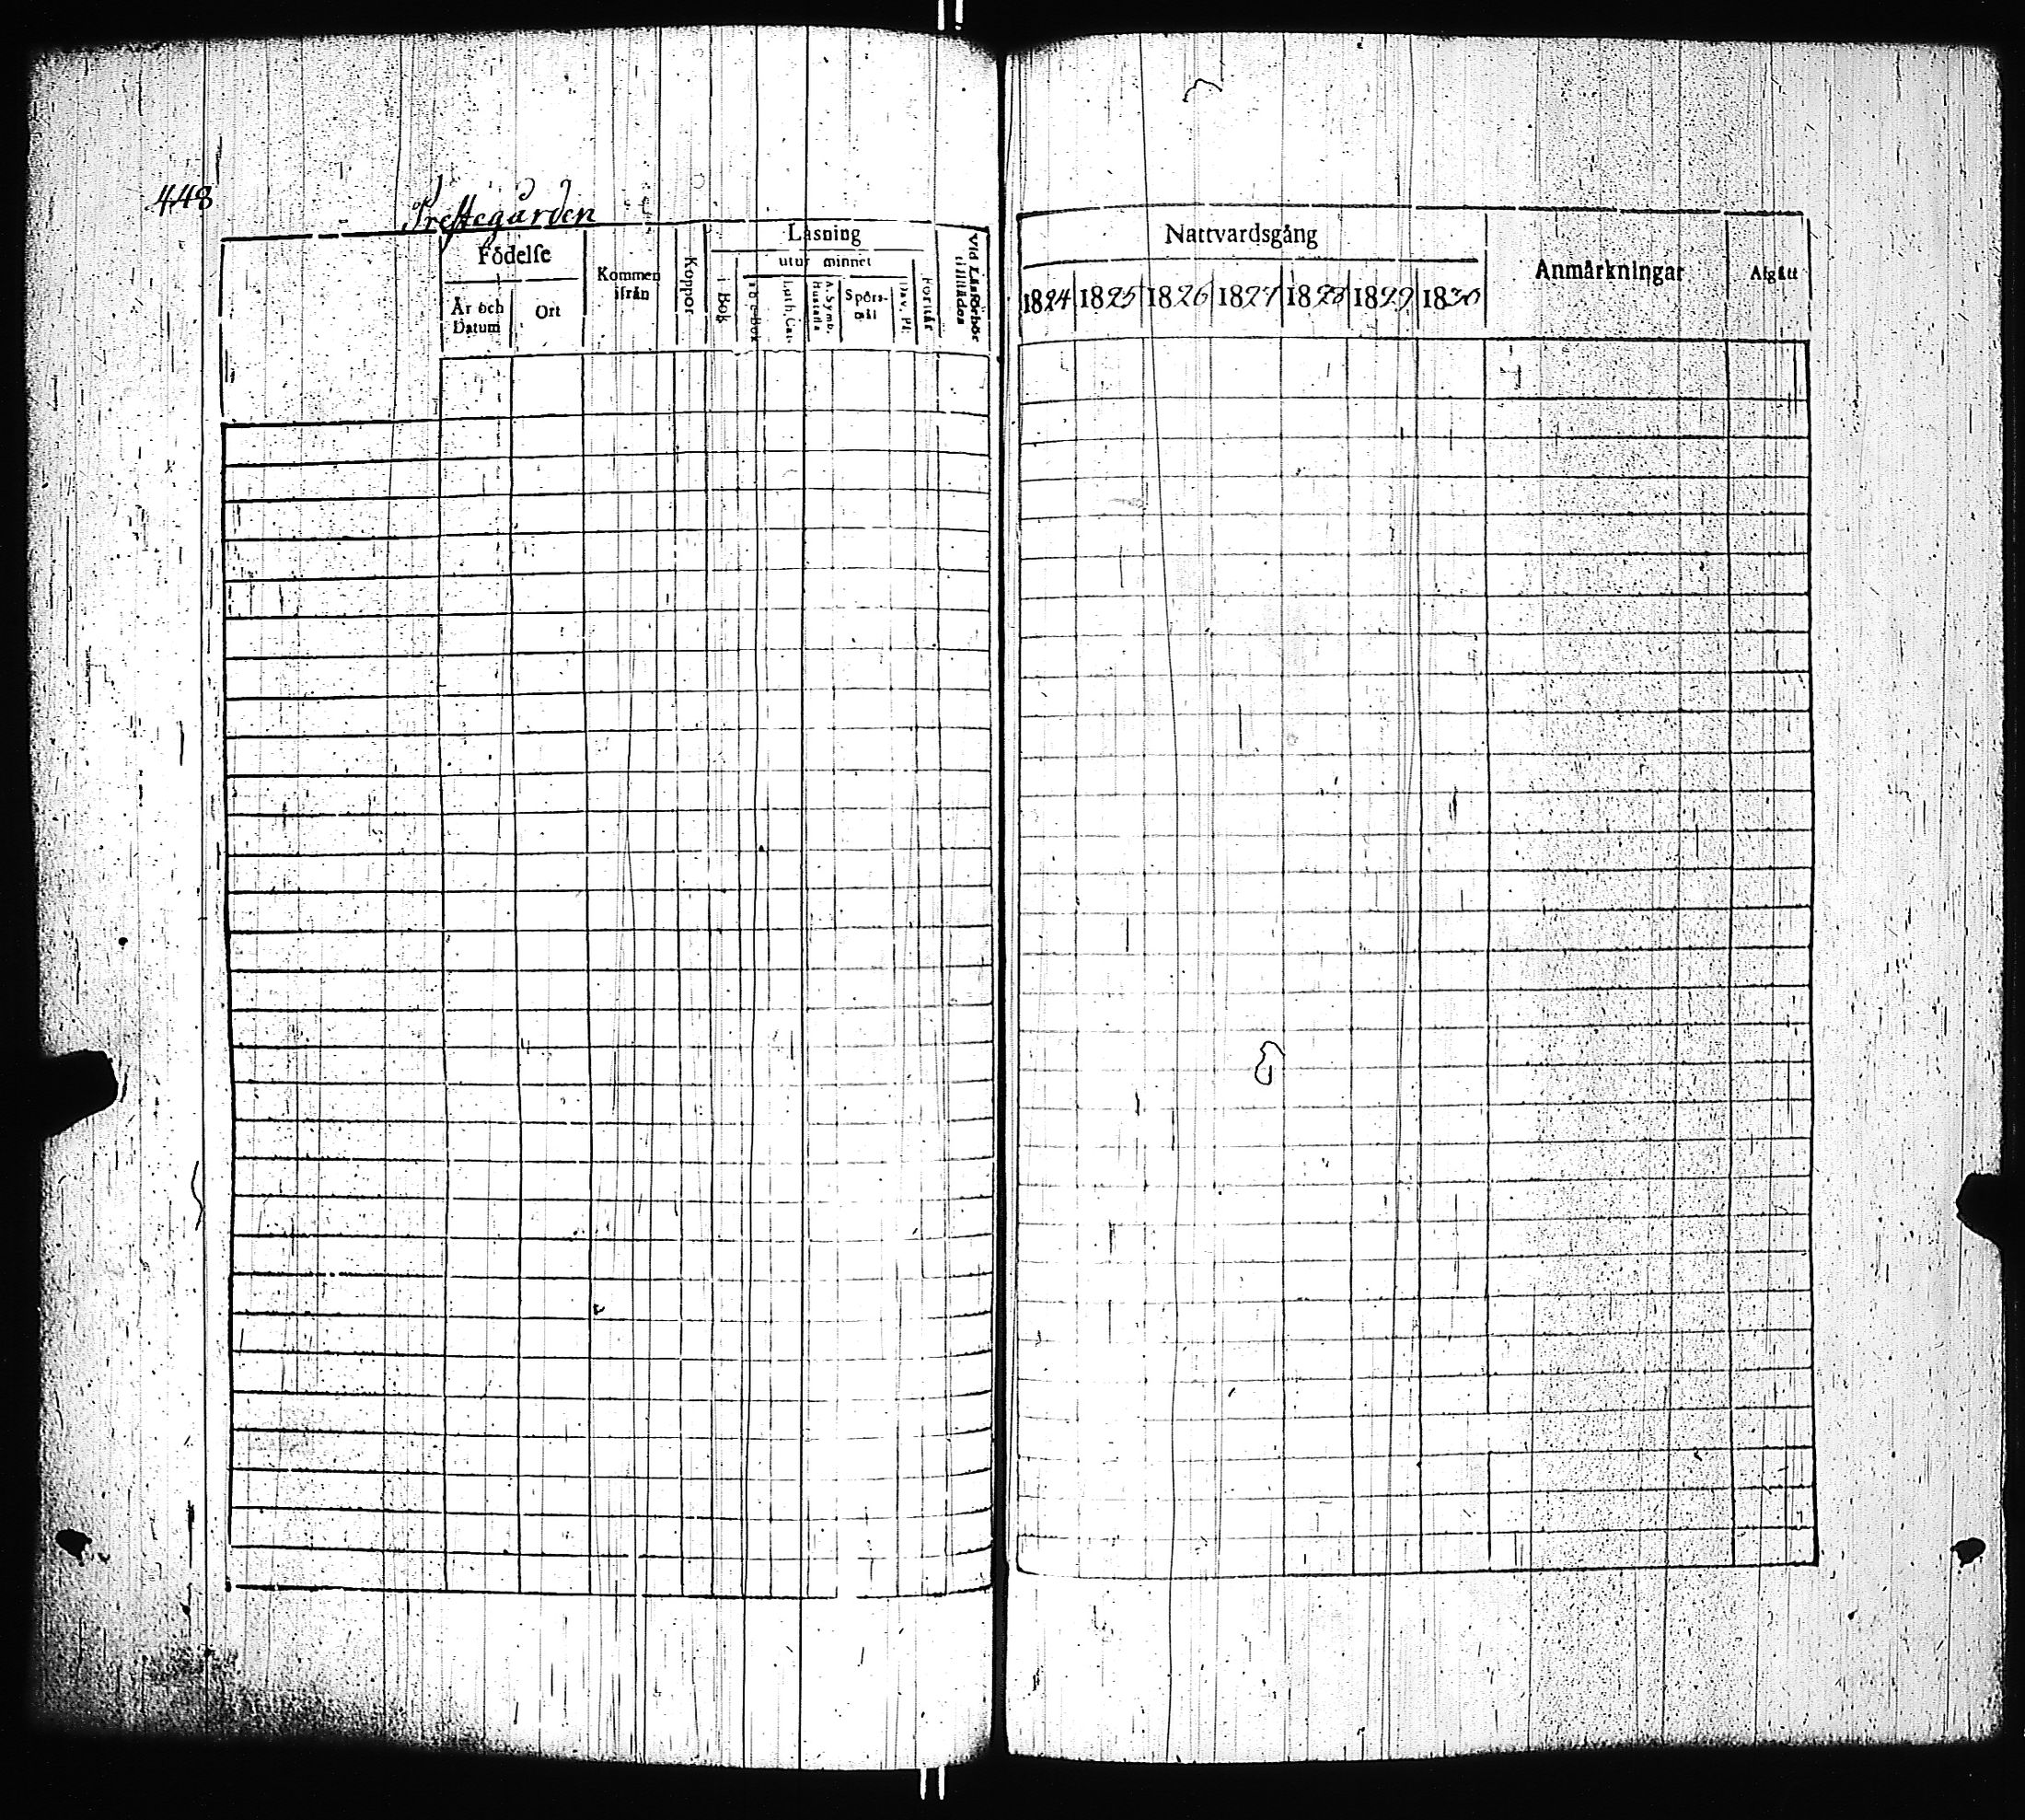 448
Prestegården
Födelse
År och Datum
Ort
Kommen ifrån
Koppor
Läsning
i Bok
utur minnet
A B C-Bok
Luth. Cat.
A. Symb. Hustafla
Spörsmål
Dav. Ps.
Förstår
Vid Läsförhör tillådos
Nattvardsgång
1824 1825 1826 1827 1828 1829 1830
Anmärkningar
Afgått